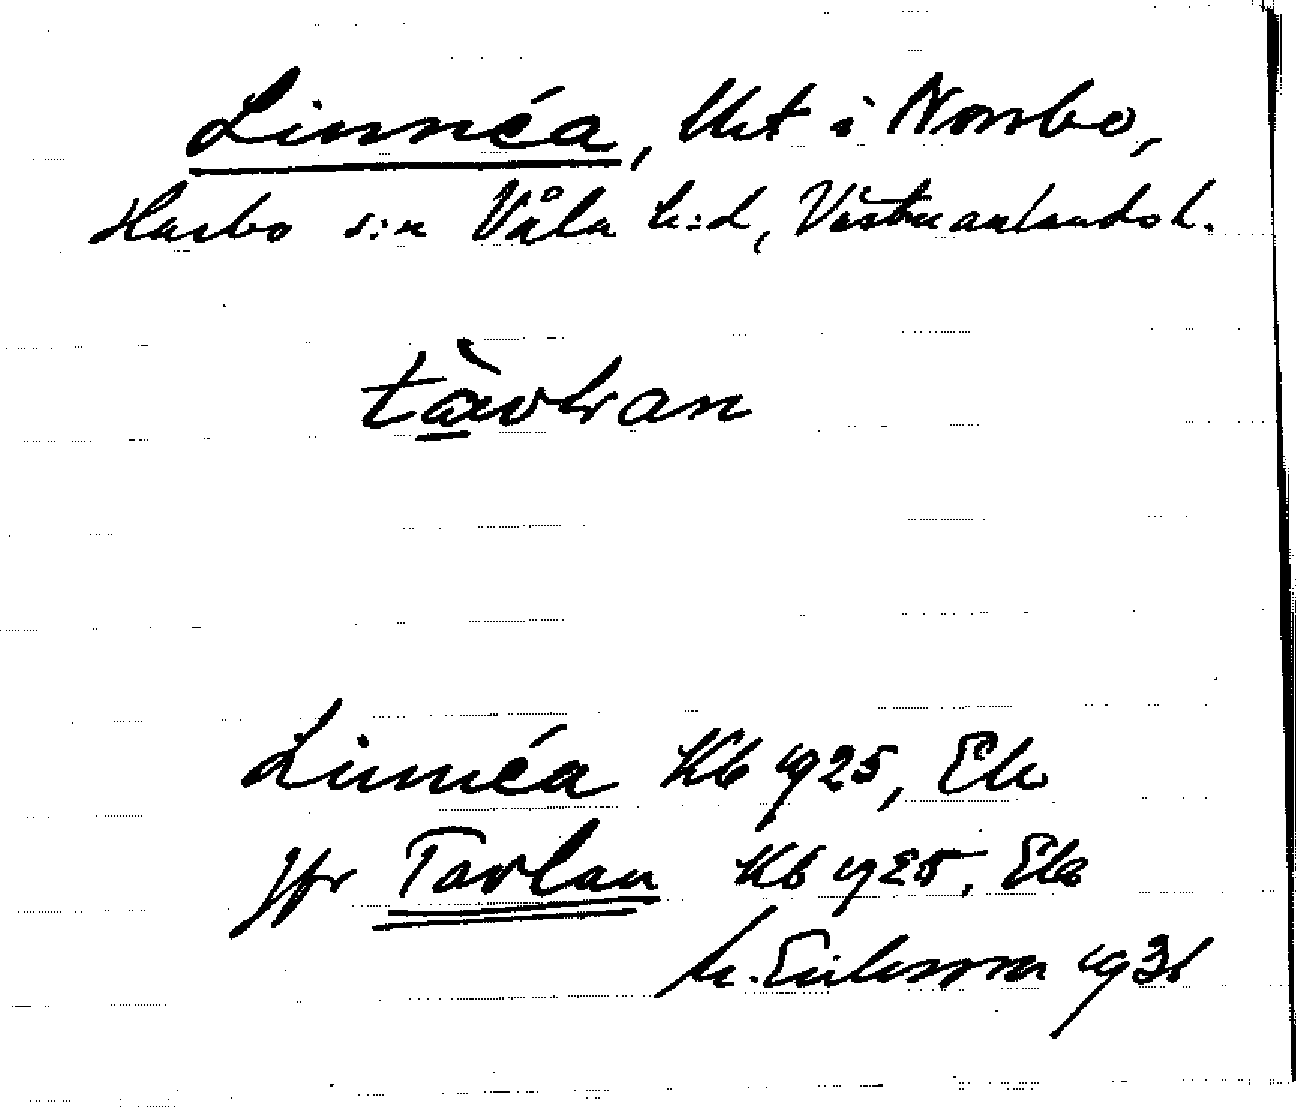 Linnéa, lht i Norrbo,
Harbo s:n Våla h:d, Västmanlands l.
tàvlan
Linnéa Kb 1925, Ek
jfr Tavlan Kb 1925, Ek
M. Eriksson 1931